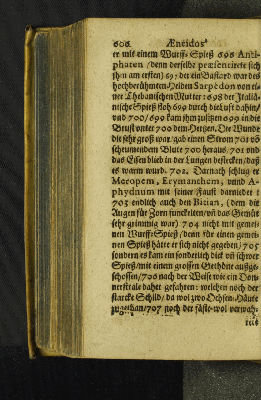 606 Æneidos
er mit einem Wurff-Spieß 696 Anti-
phaten / denn derselbe præsentirete sich
ihm am ersten) 697 der ein Bastard war des
hochberühmten Helden Sarpedon von ei-
ner Thebanischen Mutter : 698 der Italiä-
nische Spieß floh 699 durch die Lufft dahin/
und 700/699 kam ihm zusitzen 699 in die
Brust unter 700 dem Hertzen. Die Wunde
die sehr groß war / gab einen Strom 701 vō
scheumendem Blute 700 heraus / 701 und
das Eisen blieb in der Lungen bestecken/ daß
es warm wurd. 702. Darnach schlug er
Meropem, Erymanthem, unnd A-
phydnum mit seiner Faust darnider :
703 endlich auch den Bitian, (dem die
Augen für Zorn funckelten/ uñ das Gemüt
sehr grimmig war) 704 nicht mit gemei-
nen Wurff-Spieß / denn für einen gemei-
nen Spieß hätte er sich nicht gegeben/ 705
sondern es kam ein sonderlich dick uñ schwer
Spieß/ mit einem grossen Gethöne außge-
schossen/ 706 nach der Weise wie ein Don-
nerstrale daher gefahren : welchen noch der
starcke Schild/ da wol zwo Ochsen-Häute
zugethan/ 707 noch der